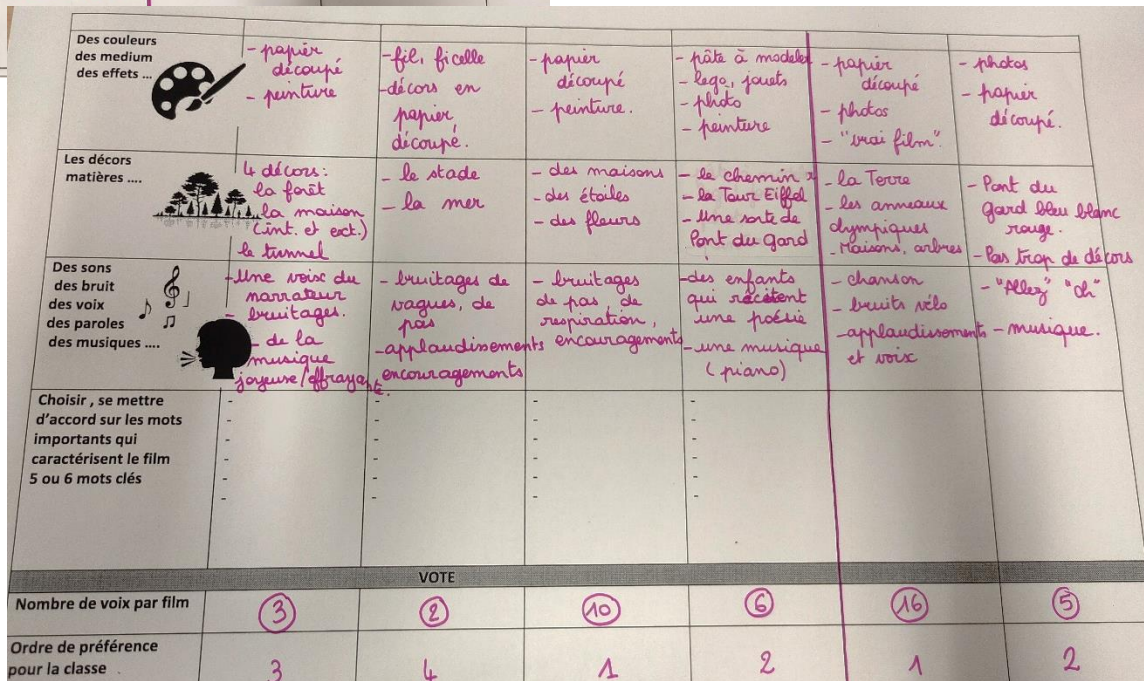 Des couleurs
des medium
des effets ...
- papier
découpé
- peinture
- fil, ficelle
- décors en
papier
découpé.
- papier
découpé
- peinture.
- pâte à modeler
- lego, jouets
- photo
- peinture
- papier
découpé
- photos
- "vrai film".
- photos
- papier
découpé.
Les décors
matières ....
4 décors:
la forêt
la maison
(int. et ext.)
le tunnel
- le stade
- la mer
- des maisons
- des étoiles
- des fleurs
- le chemin
- la Tour Eiffel
- Une sorte de
Pont du gard
- la Terre
- les anneaux
olympiques
- Maisons, arbres
- Pont du
gard bleu blanc
rouge.
- Pas trop de décors
Des sons
des bruit
des voix
des paroles
des musiques ....
- Une voix du
narrateur
- bruitages.
- de la
musique
joyeuse/effrayante.
- bruitages de
vagues, de
pas
- applaudissements
encouragements
- bruitages
de pas, de
respiration,
encouragements
- des enfants
qui récitent
une poésie
- une musique
(piano)
- chanson
- bruits vélo
- applaudissements
et voix
- "Allez" "Oh"
- musique.
Choisir , se mettre
d'accord sur les mots
importants qui
caractérisent le film
5 ou 6 mots clés
VOTE
Nombre de voix par film
3
2
10
6
16
5
Ordre de préférence
pour la classe
3
4
1
2
1
2